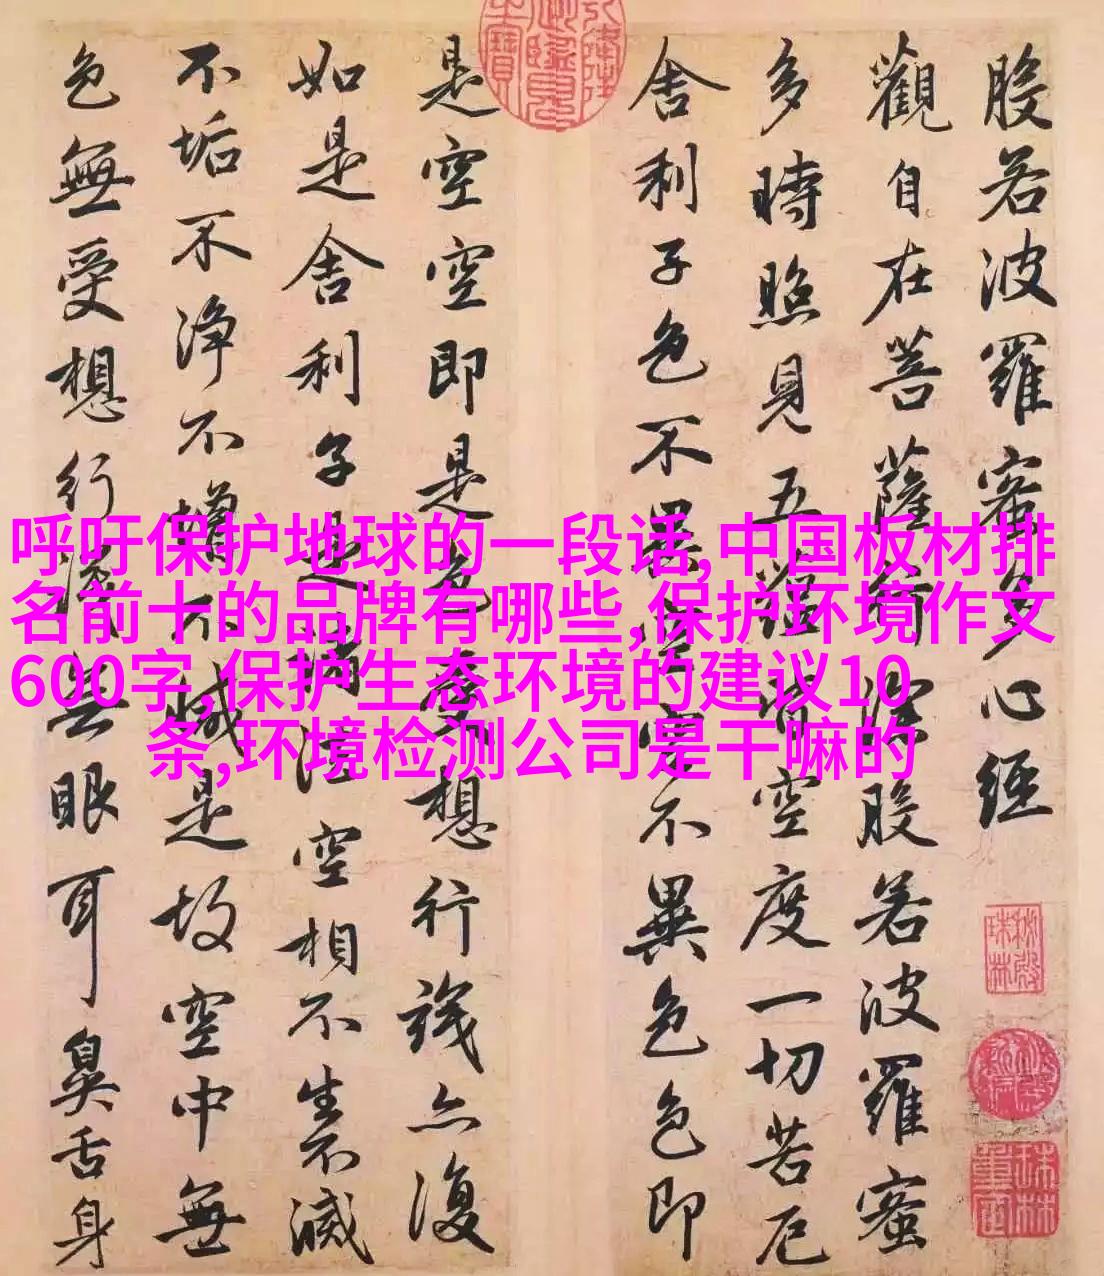 般若波羅蜜多心經
觀自在菩薩行深般若波羅蜜
多時照見五蘊皆空度一切苦厄
舍利子色不異空空不異色色即
是空空即是色受想行識亦復
如是舍利子是諸法空相不生不滅
不垢不淨不增不減是故空中無
色無受想行識無眼耳鼻舌身
秘殿珠林
珠林重定
呼吁保护地球的一段话,中国板材排
名前十的品牌有哪些,保护环境作文
600字,保护生态环境的建议10
条,环境检测公司是干嘛的